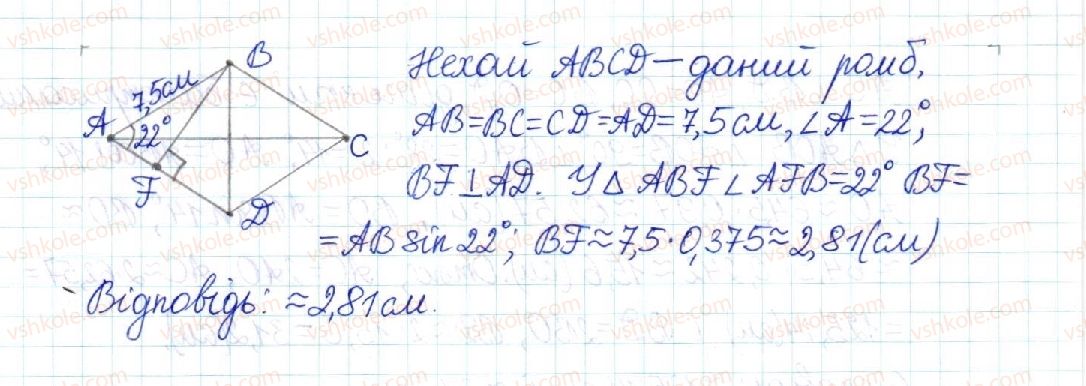 Нехай ABCD — даний ромб,
AB=BC=CD=AD=7,5 см, ∠A=22°,
BF⊥AD. У △ ABF ∠ AFB=22° BF=
=AB sin 22°; BF≈7,5·0,375≈2,81(см)
Відповідь: ≈2,81 см.
B
7,5 см
A
22°
C
F
D
vshkole.com